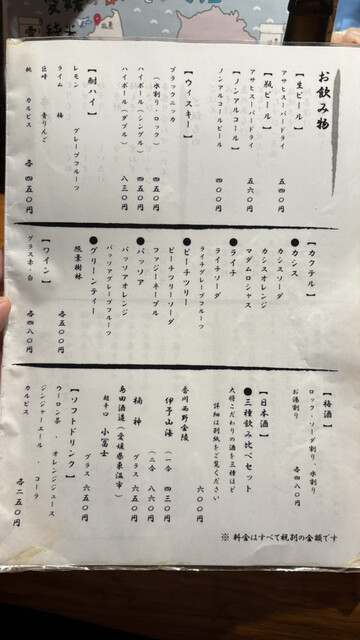 お飲み物
【生ビール】
アサヒスーパードライ 五四〇円
【瓶ビール】
アサヒスーパードライ 五六〇円
【ノンアルコール】
ノンアルコールビール 四〇〇円
【ウィスキー】
ブラックニッカ
(水割り・ロック) 四五〇円
ハイボール(シングル) 四五〇円
ハイボール(ダブル) 八三〇円
【酎ハイ】
レモン グレープフルーツ
ライム 梅
巨峰 青りんご
桃 カルピス 各四五〇円
【カクテル】
●カシス
カシスソーダ
カシスオレンジ
マダムロシャス
●ライチ
ライチソーダ
ライチグレープフルーツ
●ピーチツリー
ピーチツリーソーダ
ファジーネーブル
●パッソア
パッソアオレンジ
パッソアグレープフルーツ
●グリーンティー
照葉樹林
各五〇〇円
【ワイン】
グラス赤・白 各四八〇円
【梅酒】
ロック・ソーダ割り・水割り
お湯割り 各四八〇円
【日本酒】
●三種飲み比べセット
大将こだわりの酒を三種ほど
詳細は別紙をご覧ください
六〇〇円
香川西野金陵
伊予山海 (一合) 四三〇円
(二合) 八六〇円
楠神 グラス 六五〇円
島田酒造(愛媛県東温市)
超辛口 小冨士 グラス 六五〇円
【ソフトドリンク】
ウーロン茶 ・ オレンジジュース
ジンジャーエール ・ コーラ
カルピス 各二五〇円
※ 料金はすべて税別の金額です